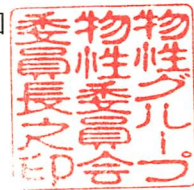 物性グループ
物性委員会
委員長之印